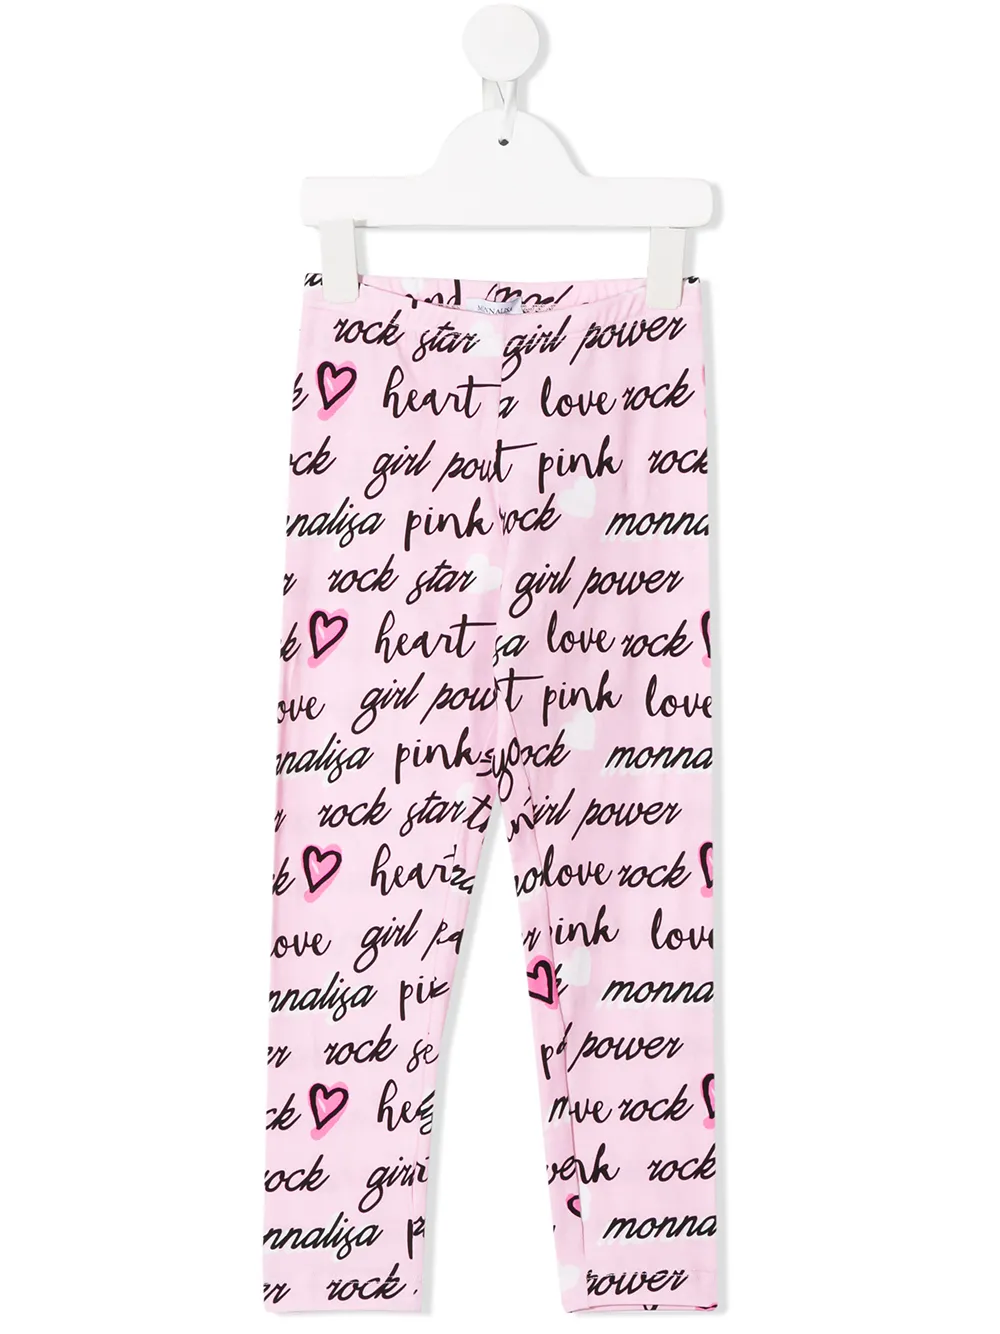 MONNALISA
rock star girl power
heart a love rock
ck girl pow t pink rock
nnalisa pink rock monna
r rock star girl power
k heart sa love rock
ove girl pow t pink love
nnalisa pink ock monna
r rock star irl power
k heart love rock
ove girl ink love
nnalisa pi monna
er rock power
ck hea ve rock
ock girl rk rock
nnalisa p monna
er rock power